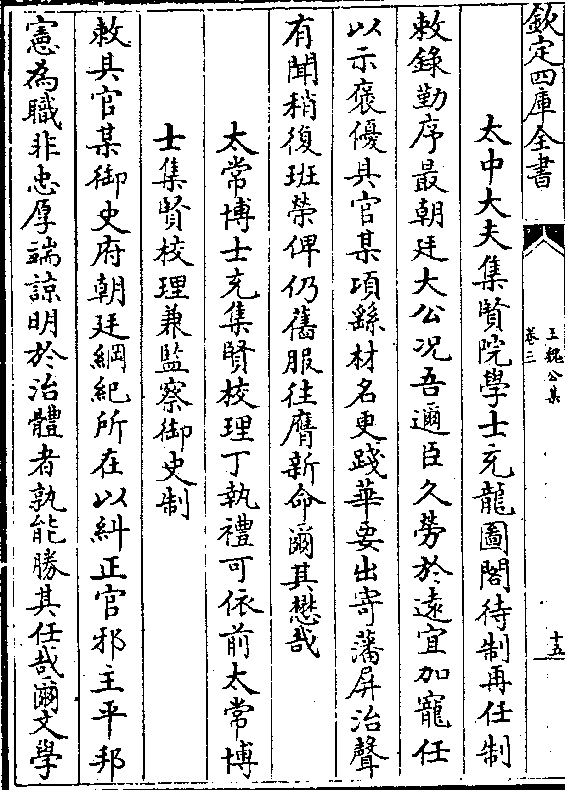 欽定四庫全書
王魏公集
卷三
十五
太中大夫集賢院學士充龍圖閣待制再任制
敕錄勤序最朝廷大公况吾邇臣久勞於遠宜加寵任
以示褒優具官某項繇材名更踐華要出寄藩屏治聲
有聞稍復班榮俾仍舊服往膺新命爾其懋哉
太常博士充集賢校理丁執禮可依前太常博
士集賢校理兼監察御史制
敕具官某御史府朝廷綱紀所在以糾正官邪主平邦
憲為職非忠厚端諒明於治體者孰能勝其任哉爾文學